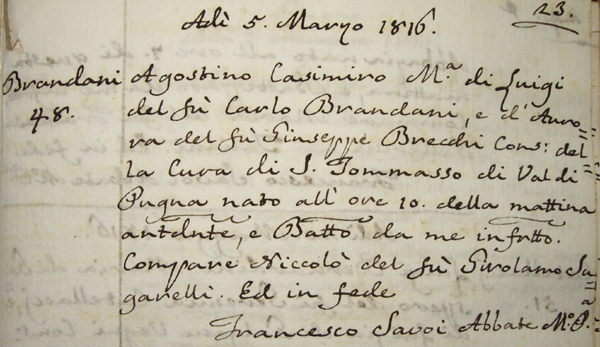 23.
Adì 5. Marzo 1816.
Brandani
48.
Agostino Casimiro M.a di Luigi
del fù Carlo Brandani, e d'Auro=
ra del fù Giuseppe Brecchi Cons: del=
la Cura di S. Tommasso di Val di
Pugna nato all'ore 10. della mattina
antdnte, e Batto da me infrtto.
Compare Niccolò del fù Girolamo Sa=
garelli. Ed in fede
Francesco Savoi Abbate M.o P.